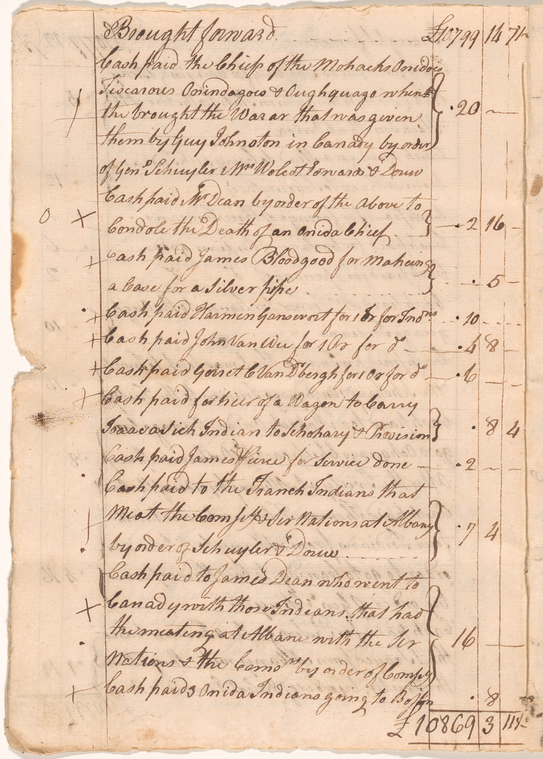 Brought forward £10799 14 7½
Cash paid the Chiefs of the Mohacks Onidoes
Tiscarous Onindagoes & Oughquago when
the brought the War ax that was given
them by Guy Johnston in Canady by order 20 —
of Genl Schuyler & Mrs Wolcot Edwards & Douw
Cash paid Mr Dean by order of the above to
Condole the Death of an Onida Chief 2 16 —
Cash paid James Bloodgood for Makeing
a Case for a Silver pipe 5 —
Cash paid Harmen Gansevort for 1 for Indns 10 —
Cash paid John Van for 1 Ox for do 4 8 —
Cash paid Gerret C Van Dbergh for 1 Ox for do 6 —
Cash paid for hier of a Wagon to Carry
Isaac a sick Indian to Schohary & Provision 8 4
Cash paid James for Service done 2 —
Cash paid to the Franch Indians that
Meat the & Six Nations at Albany 7 4
by order of Schuyler & Douw
Cash paid to James Dean who went to
Canady with those Indians that had
the meating at Albane with the Six 16 —
Nations & the by order of
Cash paid 3 Onida Indians going to Boston 8
£10869 3 11½